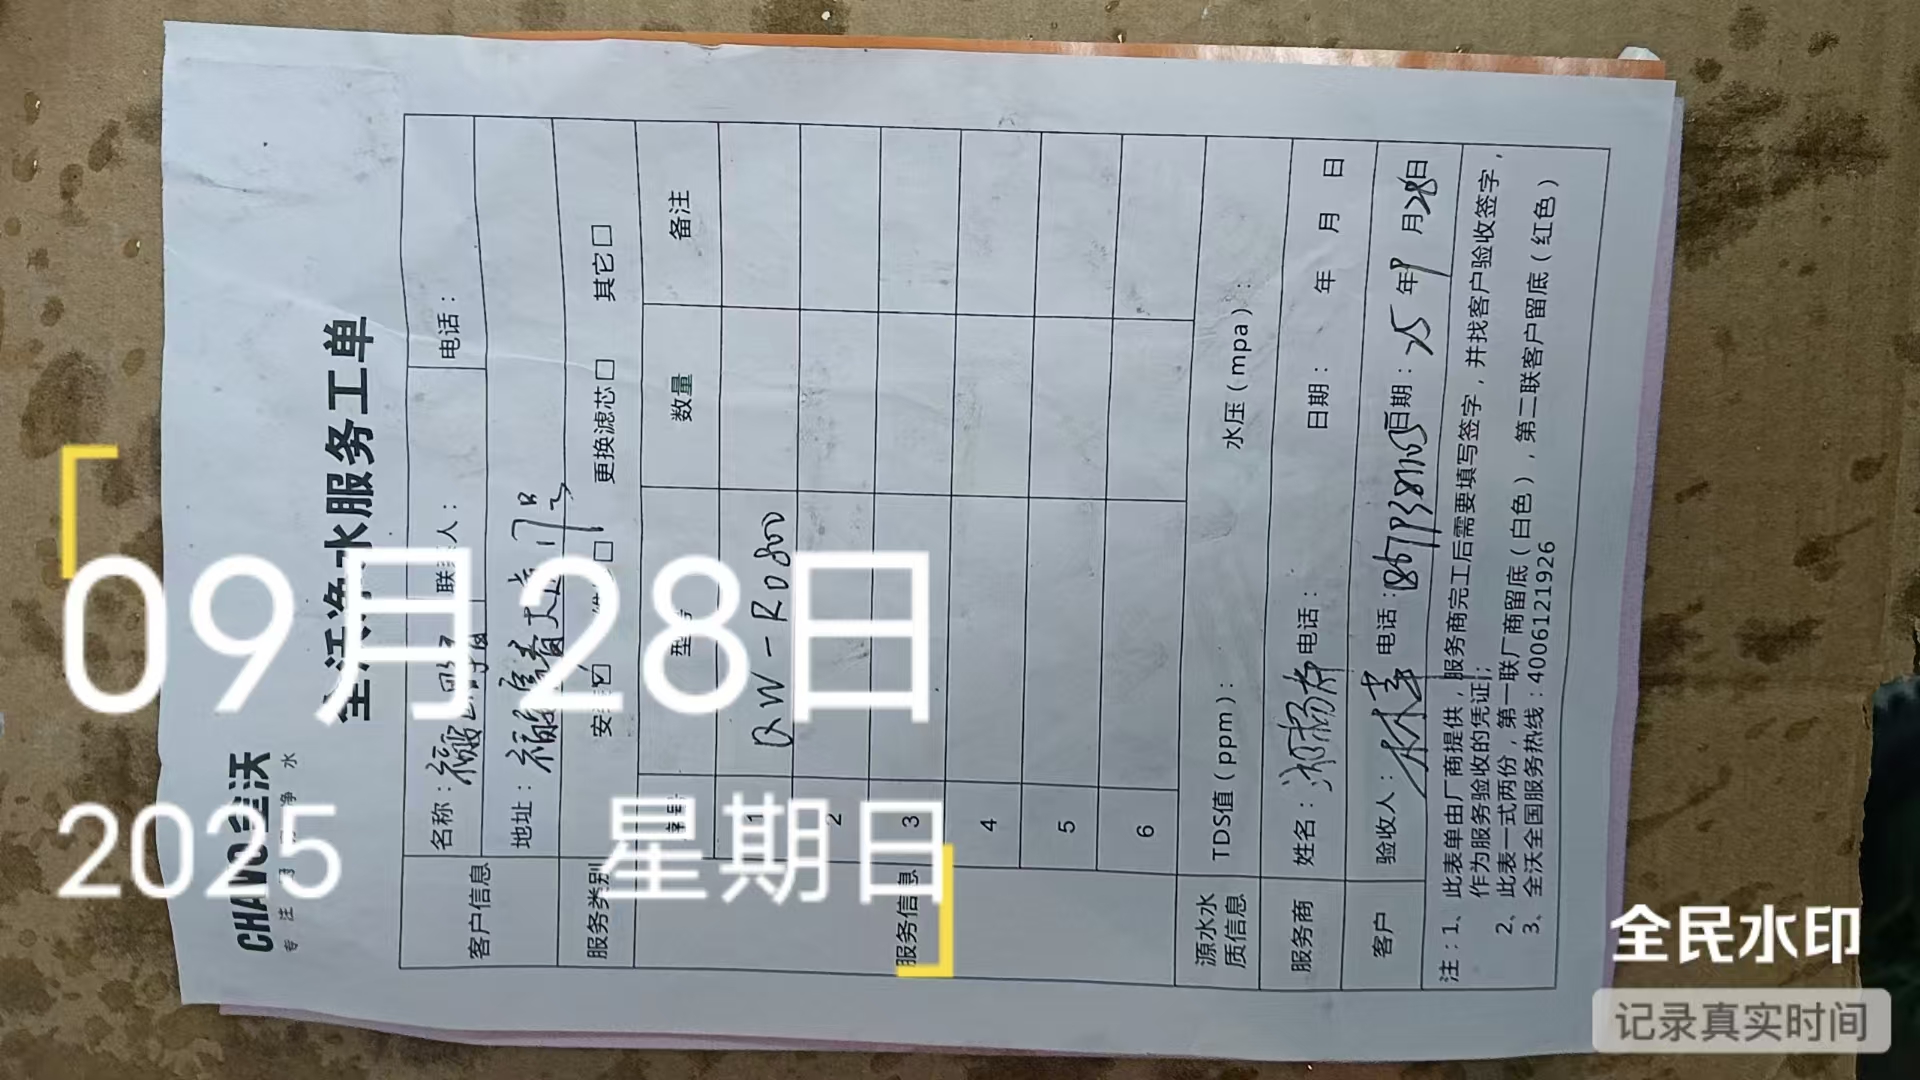 CHAWO全沃
全沃净水服务工单
客户信息
名称：
联系人：
电话：
地址：
服务类别
更换滤芯□
其它□
服务信息
序号
型号
数量
备注
1
QW-RO800
2
3
4
5
6
源水水质信息
TDS值（ppm）：
水压（mpa）：
服务商
姓名：
电话：
日期： 年 月 日
客户
验收人：
电话：
日期：25年9月28日
注：1、此表单由厂商提供，服务商完工后需要填写签字，并找客户验收签字，
作为服务验收的凭证；
2、此表一式两份，第一联厂商留底（白色），第二联客户留底（红色）
3、全沃全国服务热线：4006121926
09月28日
2025 星期日
全民水印
记录真实时间